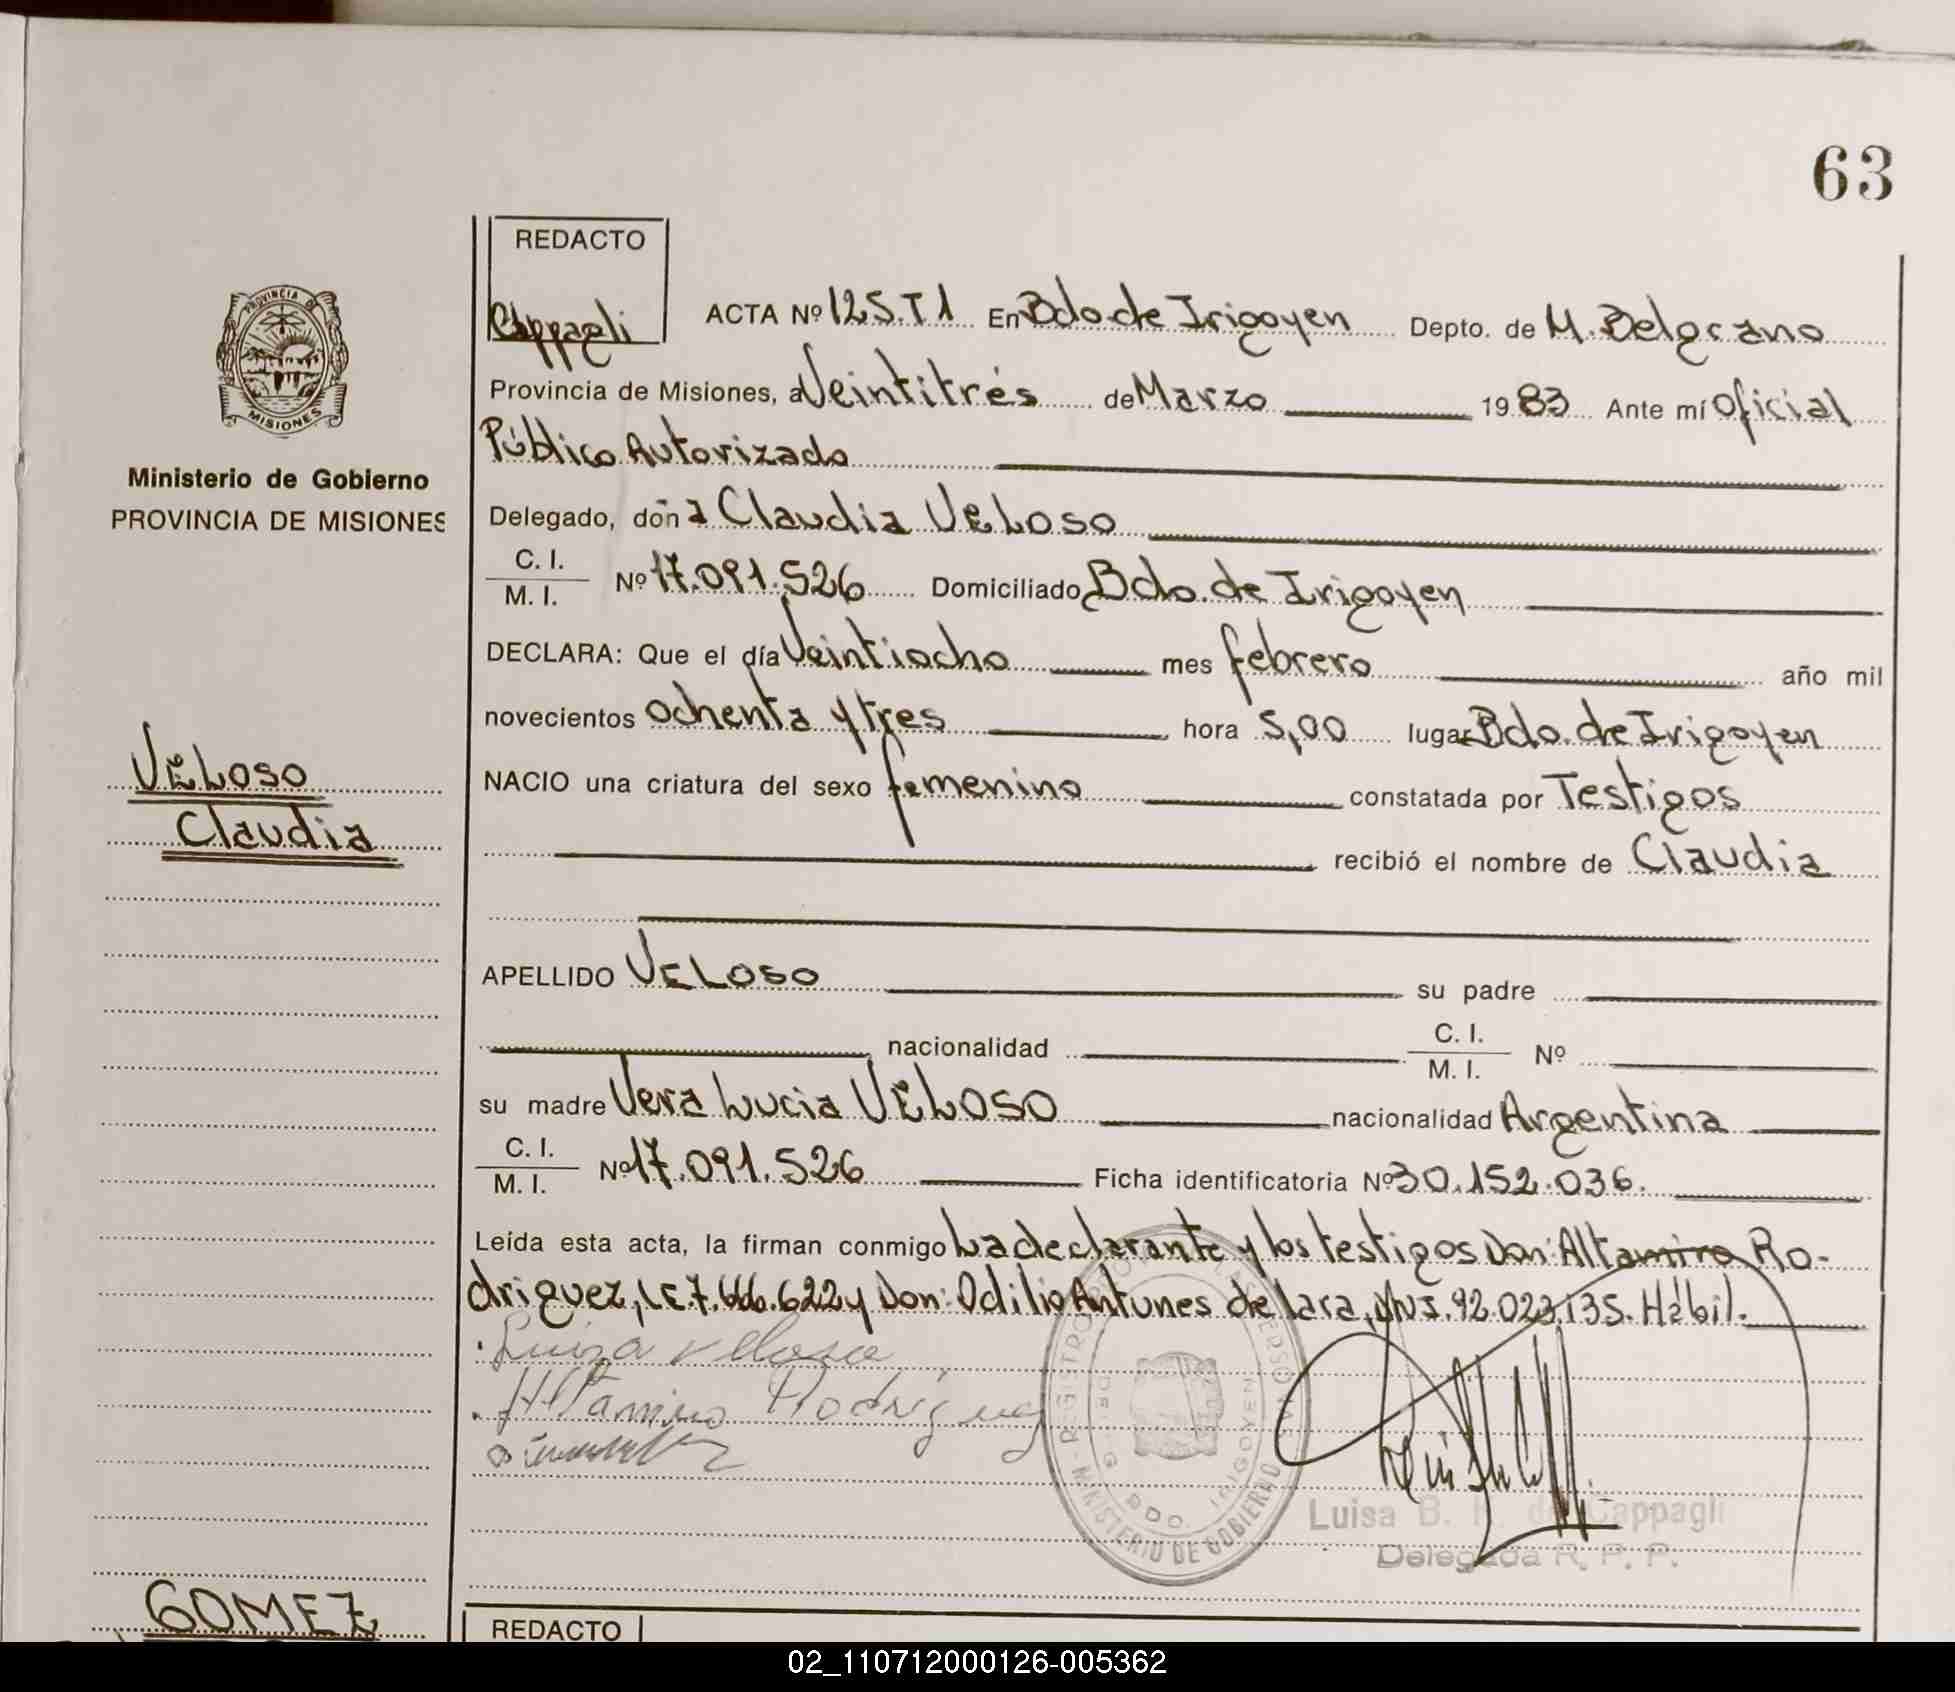 63
REDACTO
Cappagli
ACTA Nº 125.T1 En Bdo. de Irigoyen Depto. de M. Belgrano
Provincia de Misiones, a Veintitrés de Marzo 1983 Ante mí Oficial
Público Autorizado
PROVINCIA DE
MISIONES
Ministerio de Gobierno
PROVINCIA DE MISIONES
Delegado, doña Claudia VELOSO
C. I.
M. I. Nº 17.091.526 Domiciliado Bdo. de Irigoyen
DECLARA: Que el día Veintiocho mes febrero año mil
novecientos ochenta y tres hora 5,00 lugar Bdo. de Irigoyen
VELOSO
Claudia
NACIO una criatura del sexo femenino constatada por Testigos
recibió el nombre de Claudia
APELLIDO VELOSO su padre
nacionalidad C. I.
M. I. Nº
su madre Vera Lucia VELOSO nacionalidad Argentina
C. I.
M. I. Nº 17.091.526 Ficha identificatoria Nº 30.152.036.
Leída esta acta, la firman conmigo La declarante y los testigos Don: Altamiro Ro-
driguez, L.E. 7.666.622 y Don: Odilio Antunes de lara, 92.023.135. Hábil.
Altamiro Rodriguez
REGISTRO
MINISTERIO DE GOBIERNO
BDO. IRIGOYEN
Luisa B. K. de Cappagli
Delegada R. P. P.
GOMEZ
REDACTO
02_110712000126-005362